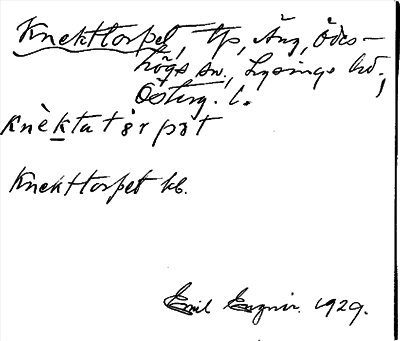 Knekttorpet, tp, Äng, Ödes-
högs sn., Lysings hd,
Österg. l.
knèktatòrpət
Knekttorpet kb.
Emil 1929.